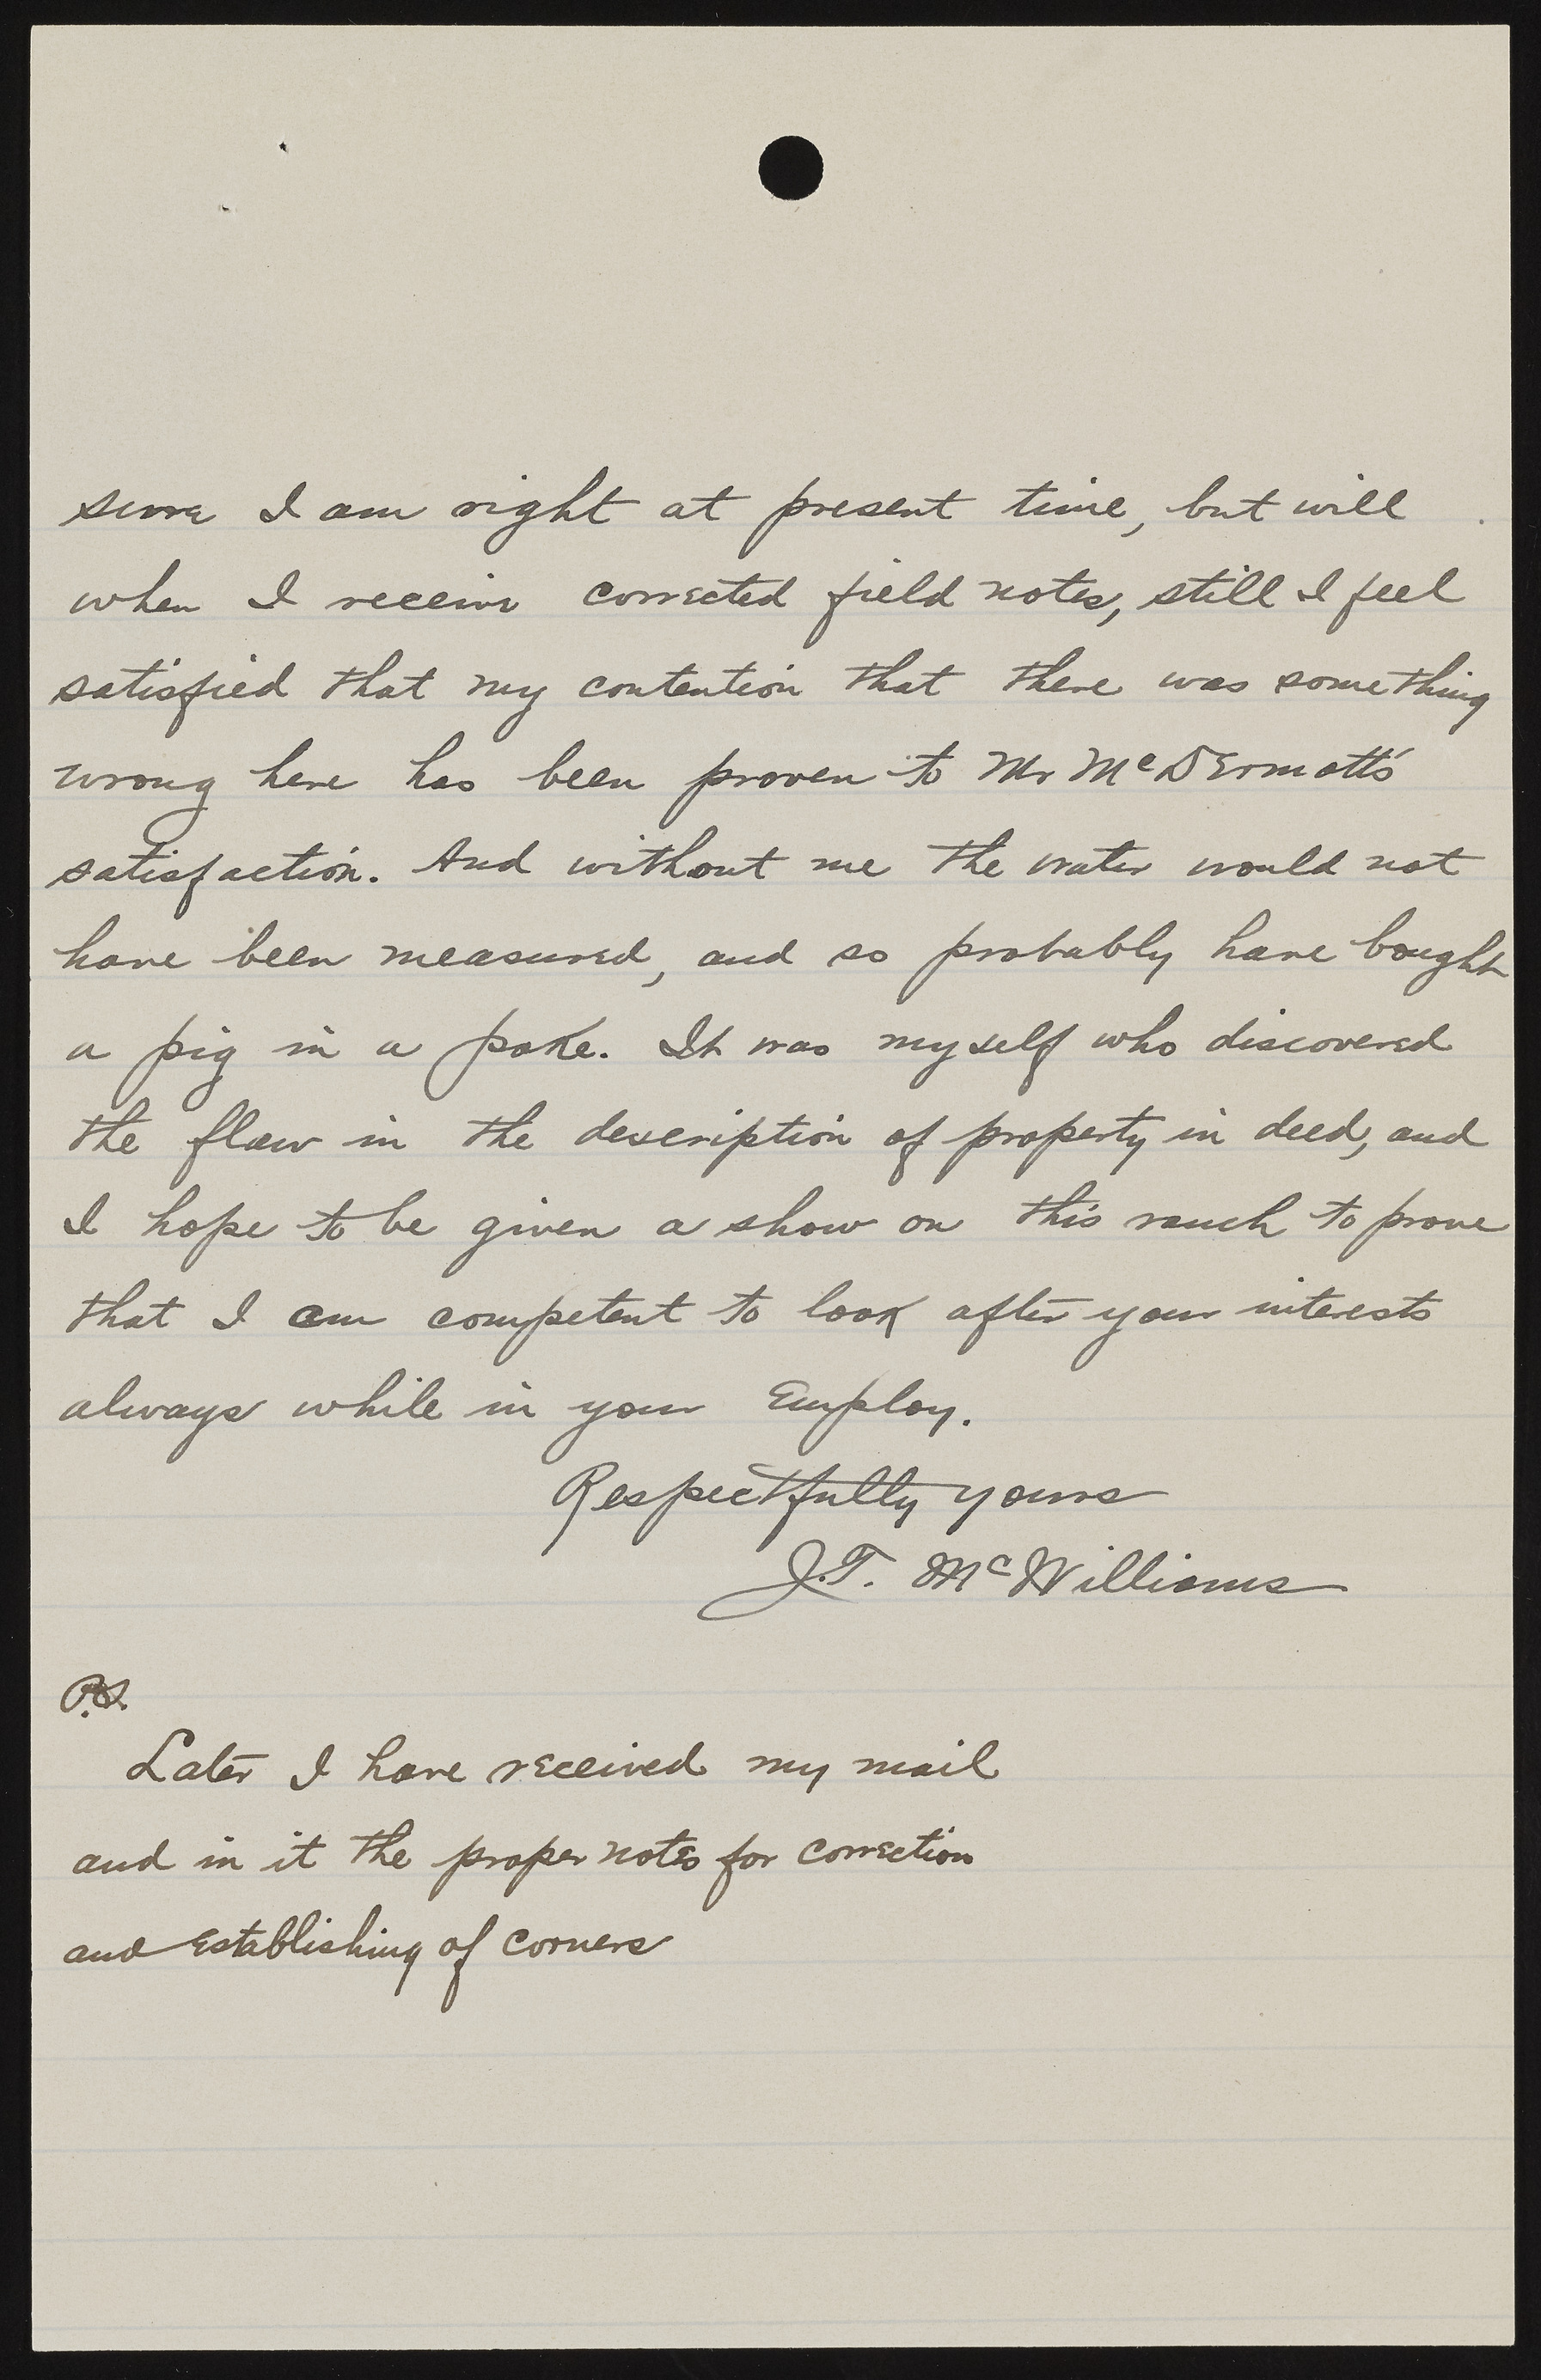 sure I am right at present time, but will
when I receive corrected field notes, still I feel
satisfied that my contention that there was something
wrong here has been proven to Mr McDermott's
satisfaction. And without me the water would not
have been measured, and so probably have bought
a pig in a poke. It was myself who discovered
the flaw in the description of property in deed, and
I hope to be given a show on this ranch to prove
that I am competent to look after your interests
always while in your Employ.
Respectfully yours
J.T. McWilliams
P.S.
Later I have received my mail
and in it the proper notes for correction
and establishing of corners